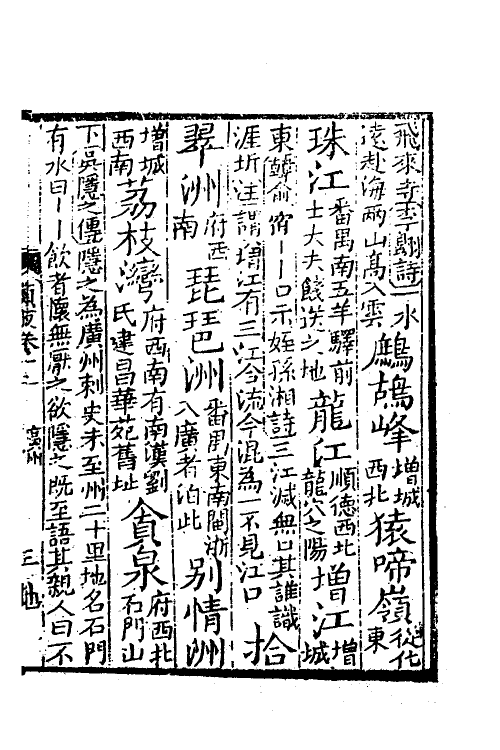 飛來寺李翺詩一水
遠赴海兩山髙入雲
鷓鴣峰增城
西北
猿啼嶺從化
東
珠江番禺南五羊驛前
士大夫餞送之地
龍江順德西北
龍穴之陽
增江增
城
東韓俞宿丨丨口示姪孫湘詩三江滅無口其誰識
涯圻注謂增江有三江合流今混為一不見江口
拾
翠洲府西
南
琵琶洲番禺東南閩浙
入廣者泊此
别情洲
增城
西南
荔枝灣府西南有南漢劉
氏建昌華苑舊址
貪泉府西北
石門山
下吳隱之傳隱之為廣州刺史未至州二十里地名石門
有水曰丨丨飲者懷無厭之欲隱之既至語其親人曰不
卷十三
三